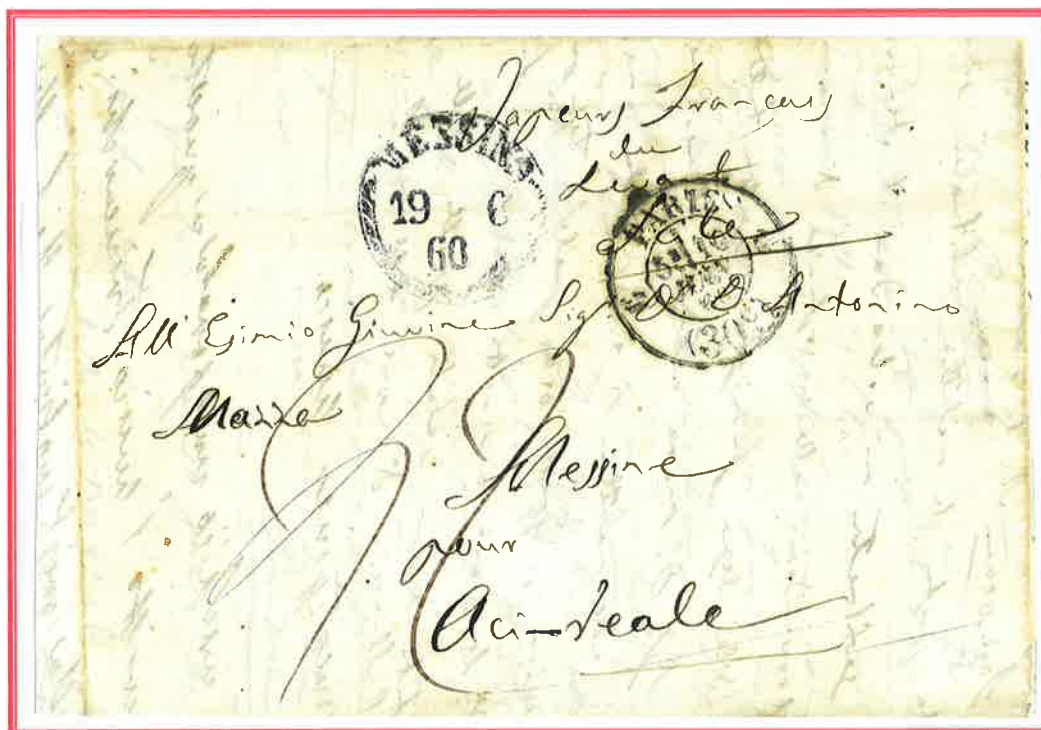 Vapeurs Français
du
Levant
MESSINA
19 6
60
PARIS
(30
All' Esimio Giuvine Sigr D. D. Antonino
Mazza
Messine
pour
Aci-reale